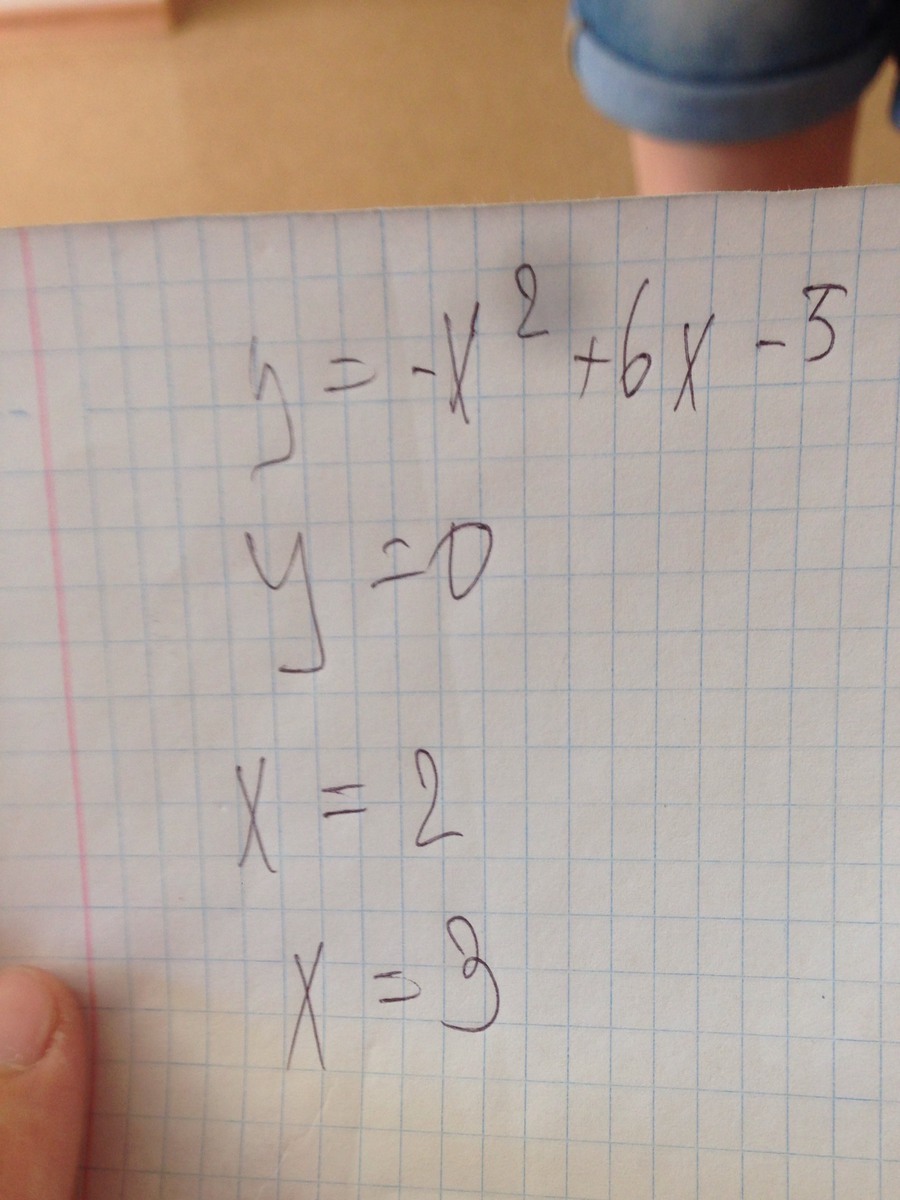 y = -x² + 6x - 5
y = 0
x = 2
x = 3